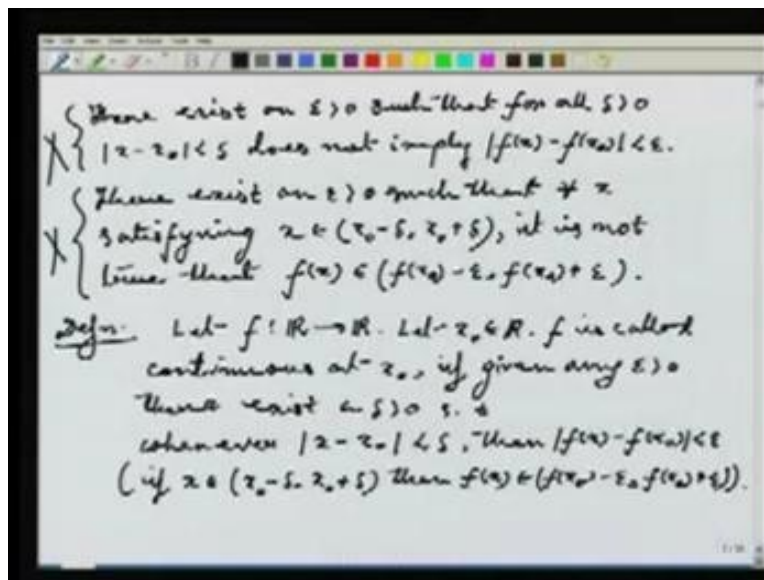 There exist an ε>0 such that for all δ>0
|x-x₀|<δ does not imply |f(x)-f(x₀)|<ε.
There exist an ε>0 such that ∀ x
satisfying x ∈ (x₀-δ, x₀+δ), it is not
true that f(x) ∈ (f(x₀)-ε, f(x₀)+ε).
Defn. Let f: ℝ→ℝ. Let x₀∈ℝ. f is called
continuous at x₀, if given any ε>0
there exist a δ>0 s.t
whenever |x-x₀|<δ, then |f(x)-f(x₀)|<ε
(if x∈(x₀-δ, x₀+δ) then f(x)∈(f(x₀)-ε, f(x₀)+ε)).